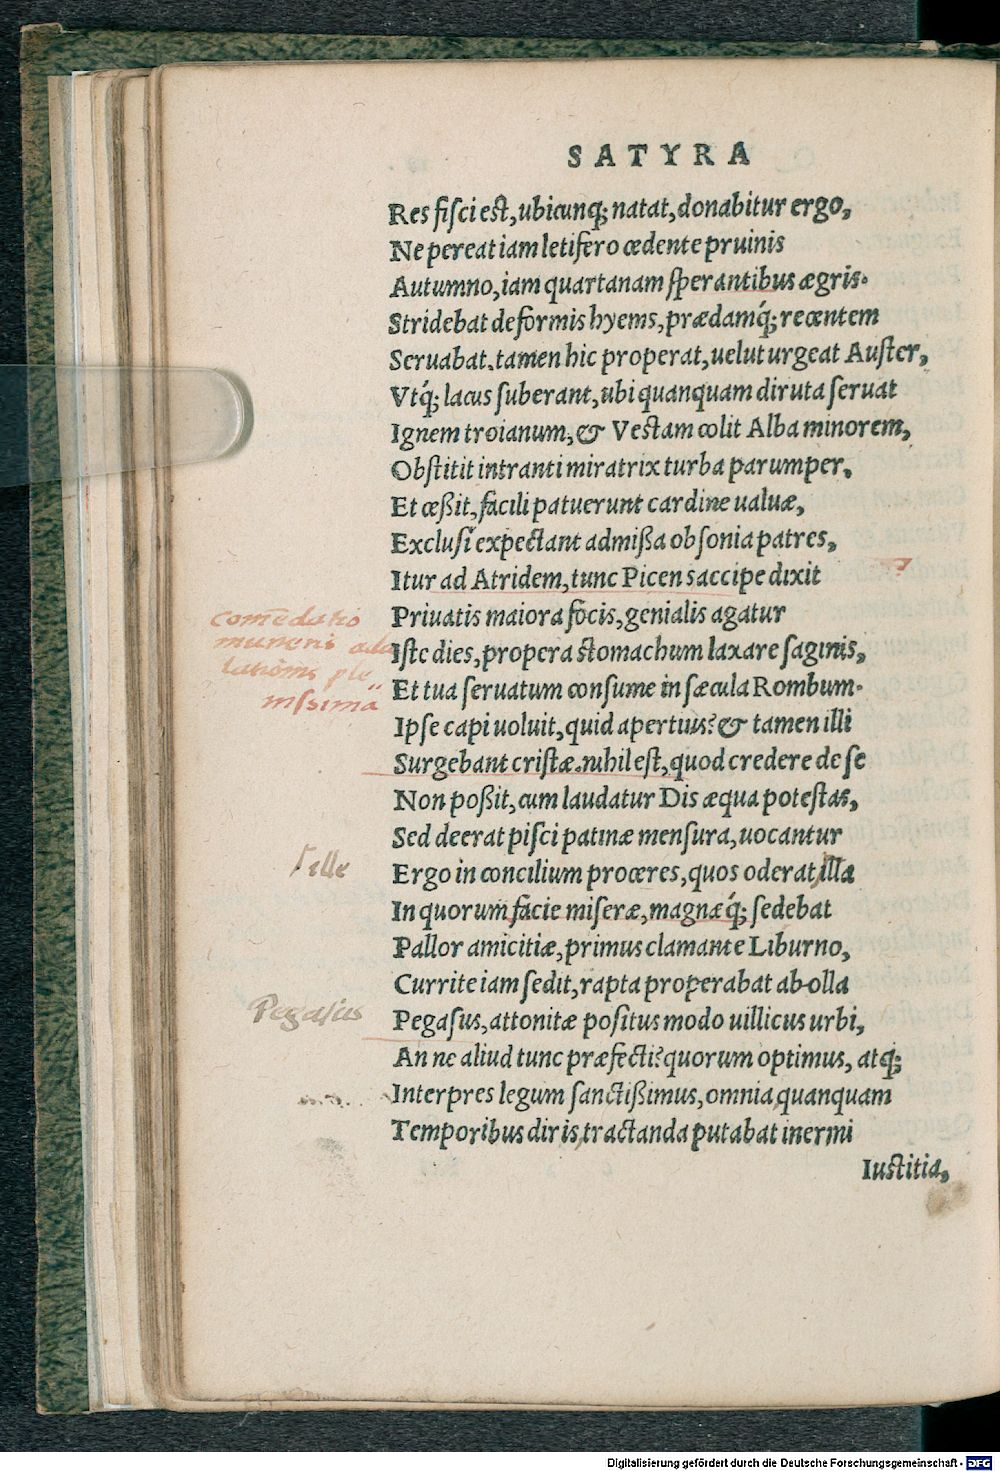 SATYRA
Res fisci est, ubicunq; natat, donabitur ergo,
Ne pereat iam letifero cedente pruinis
Autumno, iam quartanam sperantibus ægris.
Stridebat deformis hyems, prædamq́; recentem
Seruabat, tamen hic properat, uelut urgeat Auster,
Vtq́; lacus suberant, ubi quanquam diruta seruat
Ignem troianum, & Vestam colit Alba minorem,
Obstitit intranti miratrix turba parumper,
Et ceßit, facili patuerunt cardine ualuæ,
Exclusi expectant admißa obsonia patres,
Itur ad Atridem, tunc Picens accipe dixit
Priuatis maiora focis, genialis agatur
comēdatio
muneris adu
lationis ple
nissima
Iste dies, propera stomachum laxare saginis,
Et tua seruatum consume in sæcula Rombum.
Ipse capi uoluit, quid apertius? & tamen illi
Surgebant cristæ. nihil est, quod credere de se
Non poßit, cum laudatur Dis æqua potestas,
Sed deerat pisci patinæ mensura, uocantur
Ergo in concilium proceres, quos oderat illa
ille
In quorum facie miseræ, magnæq́; sedebat
Pallor amicitiæ, primus clamante Liburno,
Currite iam sedit, rapta properabat abolla
Pegasus
Pegasus, attonitæ positus modo uillicus urbi,
An ne aliud tunc præfecti? quorum optimus, atq;
Interpres legum sanctißimus, omnia quanquam
Temporibus diris tractanda putabat inermi
Iustitia,
Digitalisierung gefördert durch die Deutsche Forschungsgemeinschaft - DFG